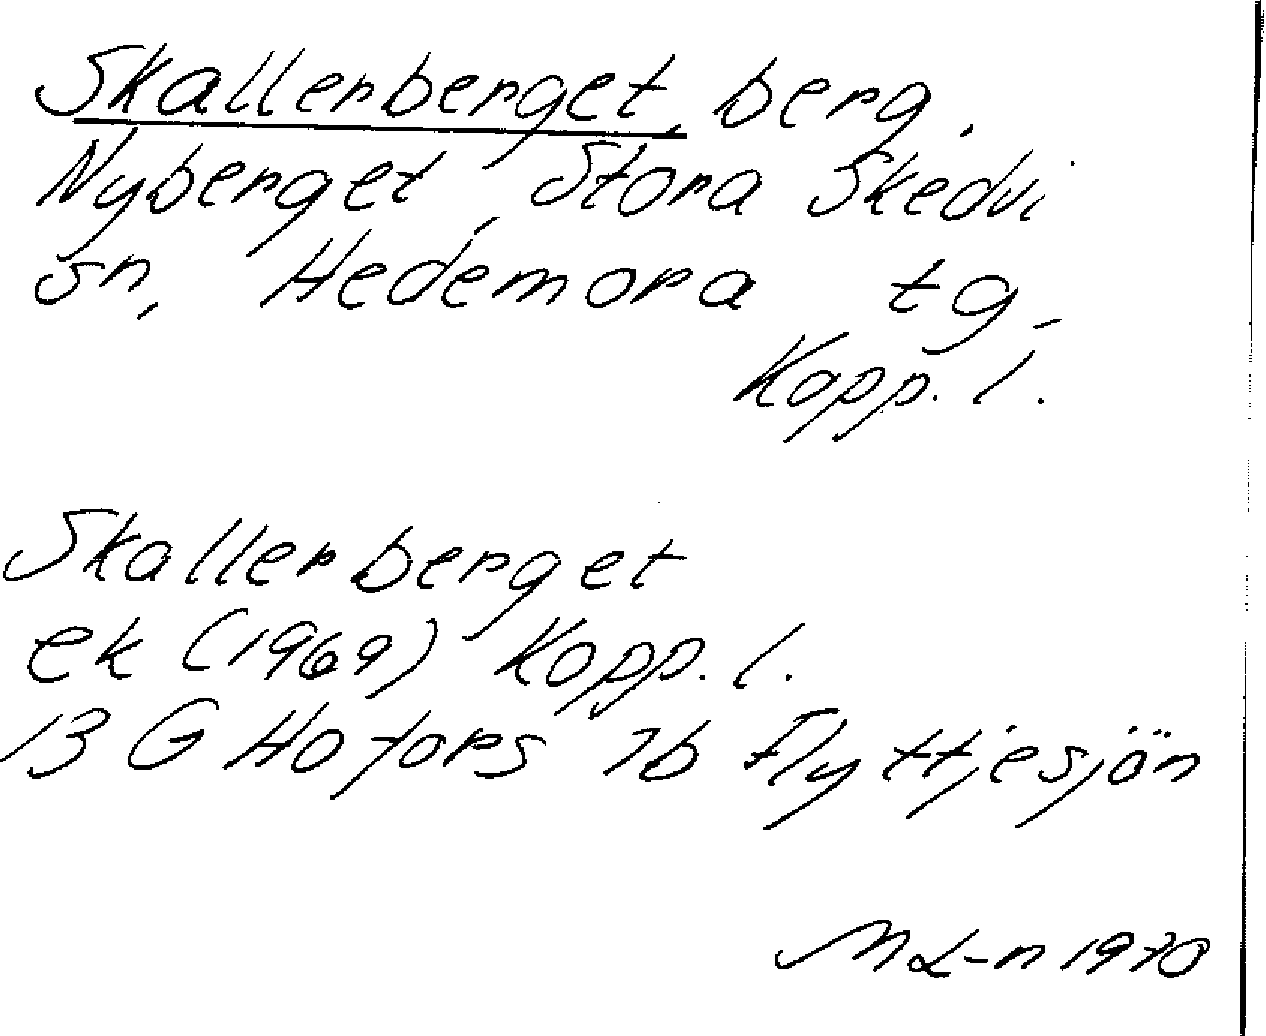 Skallerberget, berg.
Nyberget, Stora Skedvi
sn, Hedemora tg,
Kopp. l.
Skallerberget
ek (1969) Kopp. l.
13 G Hofors 7b Flyttjesjön
ML-n 1970